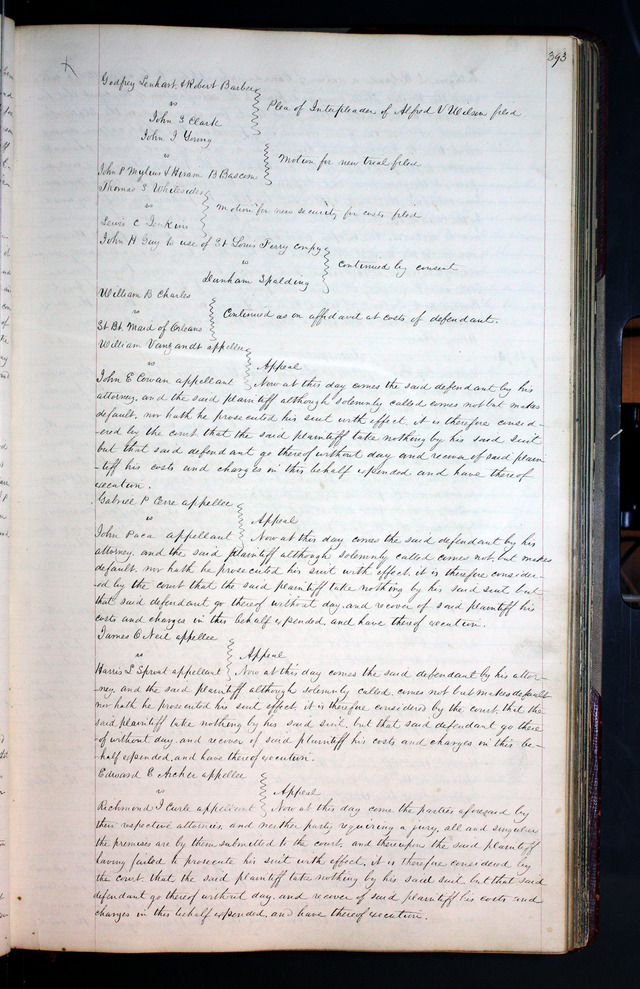 393
Godfrey Lenhart, & Robert Barbour
vs
John I Clark
Plea of Interpleader of Alfred V Wilson filed
John I Young
vs
John P Mylius & Hiram B Bascom
Motion for new trial filed
Thomas S Whitesides
vs
Lewis C Jenkins
motion for new security for costs filed
John H Guy to use of St Louis Ferry compy
vs
Dunham Spalding
continued by consent
William B Charles
vs
St. Bt. Maid of Orleans
Continued as on affidavit at costs of defendant.
William Vanzandt appellee
vs
Appeal
John E Cowan appellant
Now at this day comes the said defendant by his
attorney, and the said plaintiff although solemnly called comes not but makes
default, nor hath he prosecuted his suit with effect, it is therefore consid-
-ered by the court that the said plaintiff take nothing by his said suit
but that said defendant go thereof without day and recover of said plain-
-tiff his costs and charges in this behalf expended and have thereof
execution.
Gabriel P Cerre appellee
vs
Appeal
John Paca appellant
Now at this day comes the said defendant by his
attorney, and the said plaintiff although solemnly called comes not, but makes
default, nor hath he prosecuted his suit with effect, it is therefore consider-
-ed by the court that the said plaintiff take nothing by his said suit but
that said defendant go thereof without day, and recover of said plaintiff his
costs and charges in this behalf expended, and have thereof execution.
James O Neil appellee
vs
Appeal
Harris L Sprout appellant
Now at this day comes the said defendant by his attor-
-ney, and the said plaintiff although solemnly called, comes not but makes default
nor hath he prosecuted his suit effect, it is therefore considered by the court, that the
said plaintiff take nothing by his said suit, but that said defendant go there
-of without day and recover of said plaintiff his costs and charges in this be-
-half expended, and have thereof execution.
Edward E Archer appellee
vs
Appeal
Richmond I Curle appellant
Now at this day come the parties aforesaid by
their respective attornies, and neither party requiring a jury, all and singular
the premises are by them submitted to the court, and thereupon the said plaintiff
having failed to prosecute his suit with effect, it is therefore considered by
the court, that the said plaintiff take nothing by his said suit, but that said
defendant go thereof without day, and recover of said plaintiff his costs and
charges in this behalf expended, and have thereof execution.